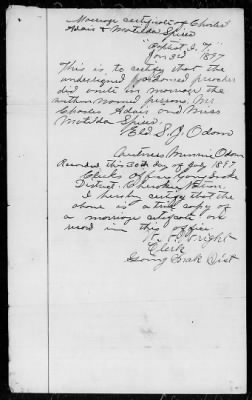 Marriage certificate of Charles
Adair & Matilda Spired
"Boptist I. T."
Jan 3rd 1897
This is to certify that the
undersigned ordained preacher
did unite in marriage the
within named persons, Mr
Charles Adair and Miss
Matilda Spired.
Eld S. J. Odom
Witness Minnie Odom
Recorded this 30th day of July 1897
Clerks Office Going Snake
District. Cherokee Nation.
I hereby certify that the
above is a true copy of
a marriage certificate on
record in this office.
Wright
Clerk
Going Snake Dist